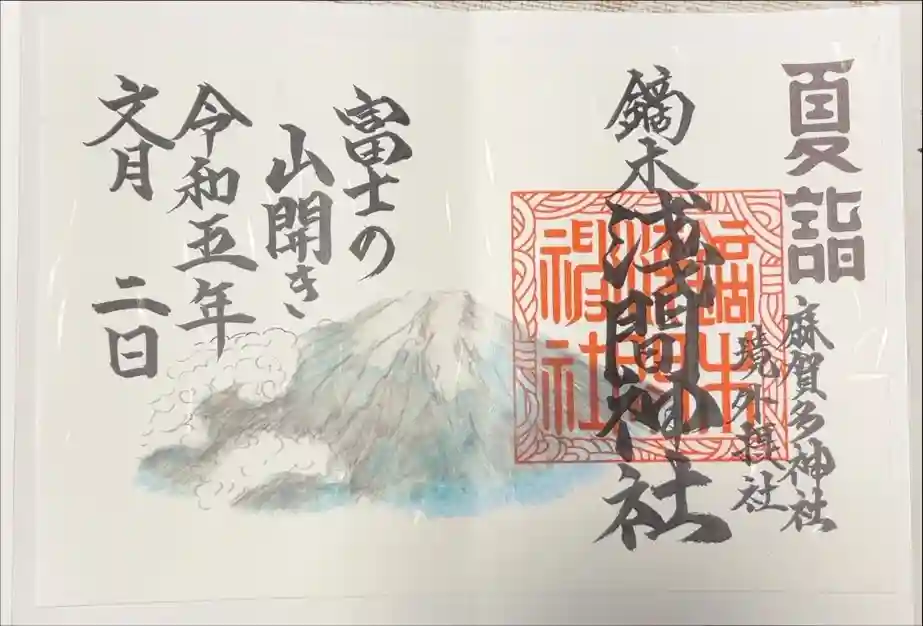 夏詣
麻賀多神社
境外摂社
鏑木浅間神社
鏑木
浅間
神社
富士の
山開き
令和五年
文月 二日